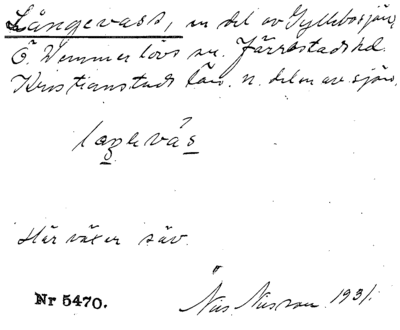 Långevass, en del av Gyllebosjön,
Ö. Vemmerlövs sn. Järrestads hd.
Kristianstads län. n. delen av sjön.
Här växer säv.
Nr 5470.
Nils Nilsson 1931.